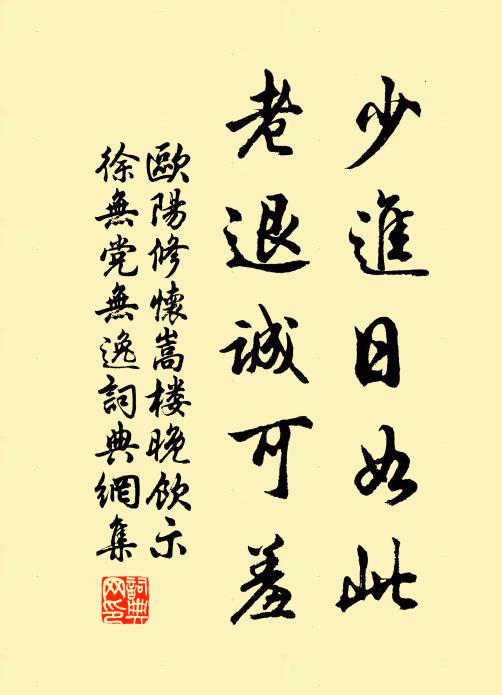 少進日如此
老退誠可羞
歐陽修懷嵩楼晚飲示
徐無党無逸詞典網集
詞典網印